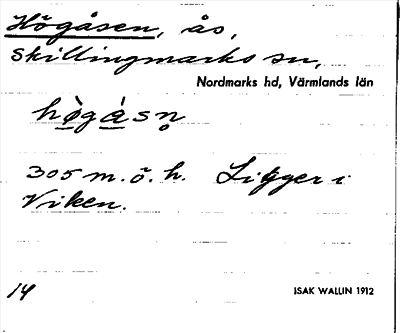 Högåsen, ås,
Skillingmarks sn,
Nordmarks hd, Värmlands län
hò̲gà̲sn̥
305 m. ö. h. Ligger i
Viken.
14
ISAK WALLIN 1912